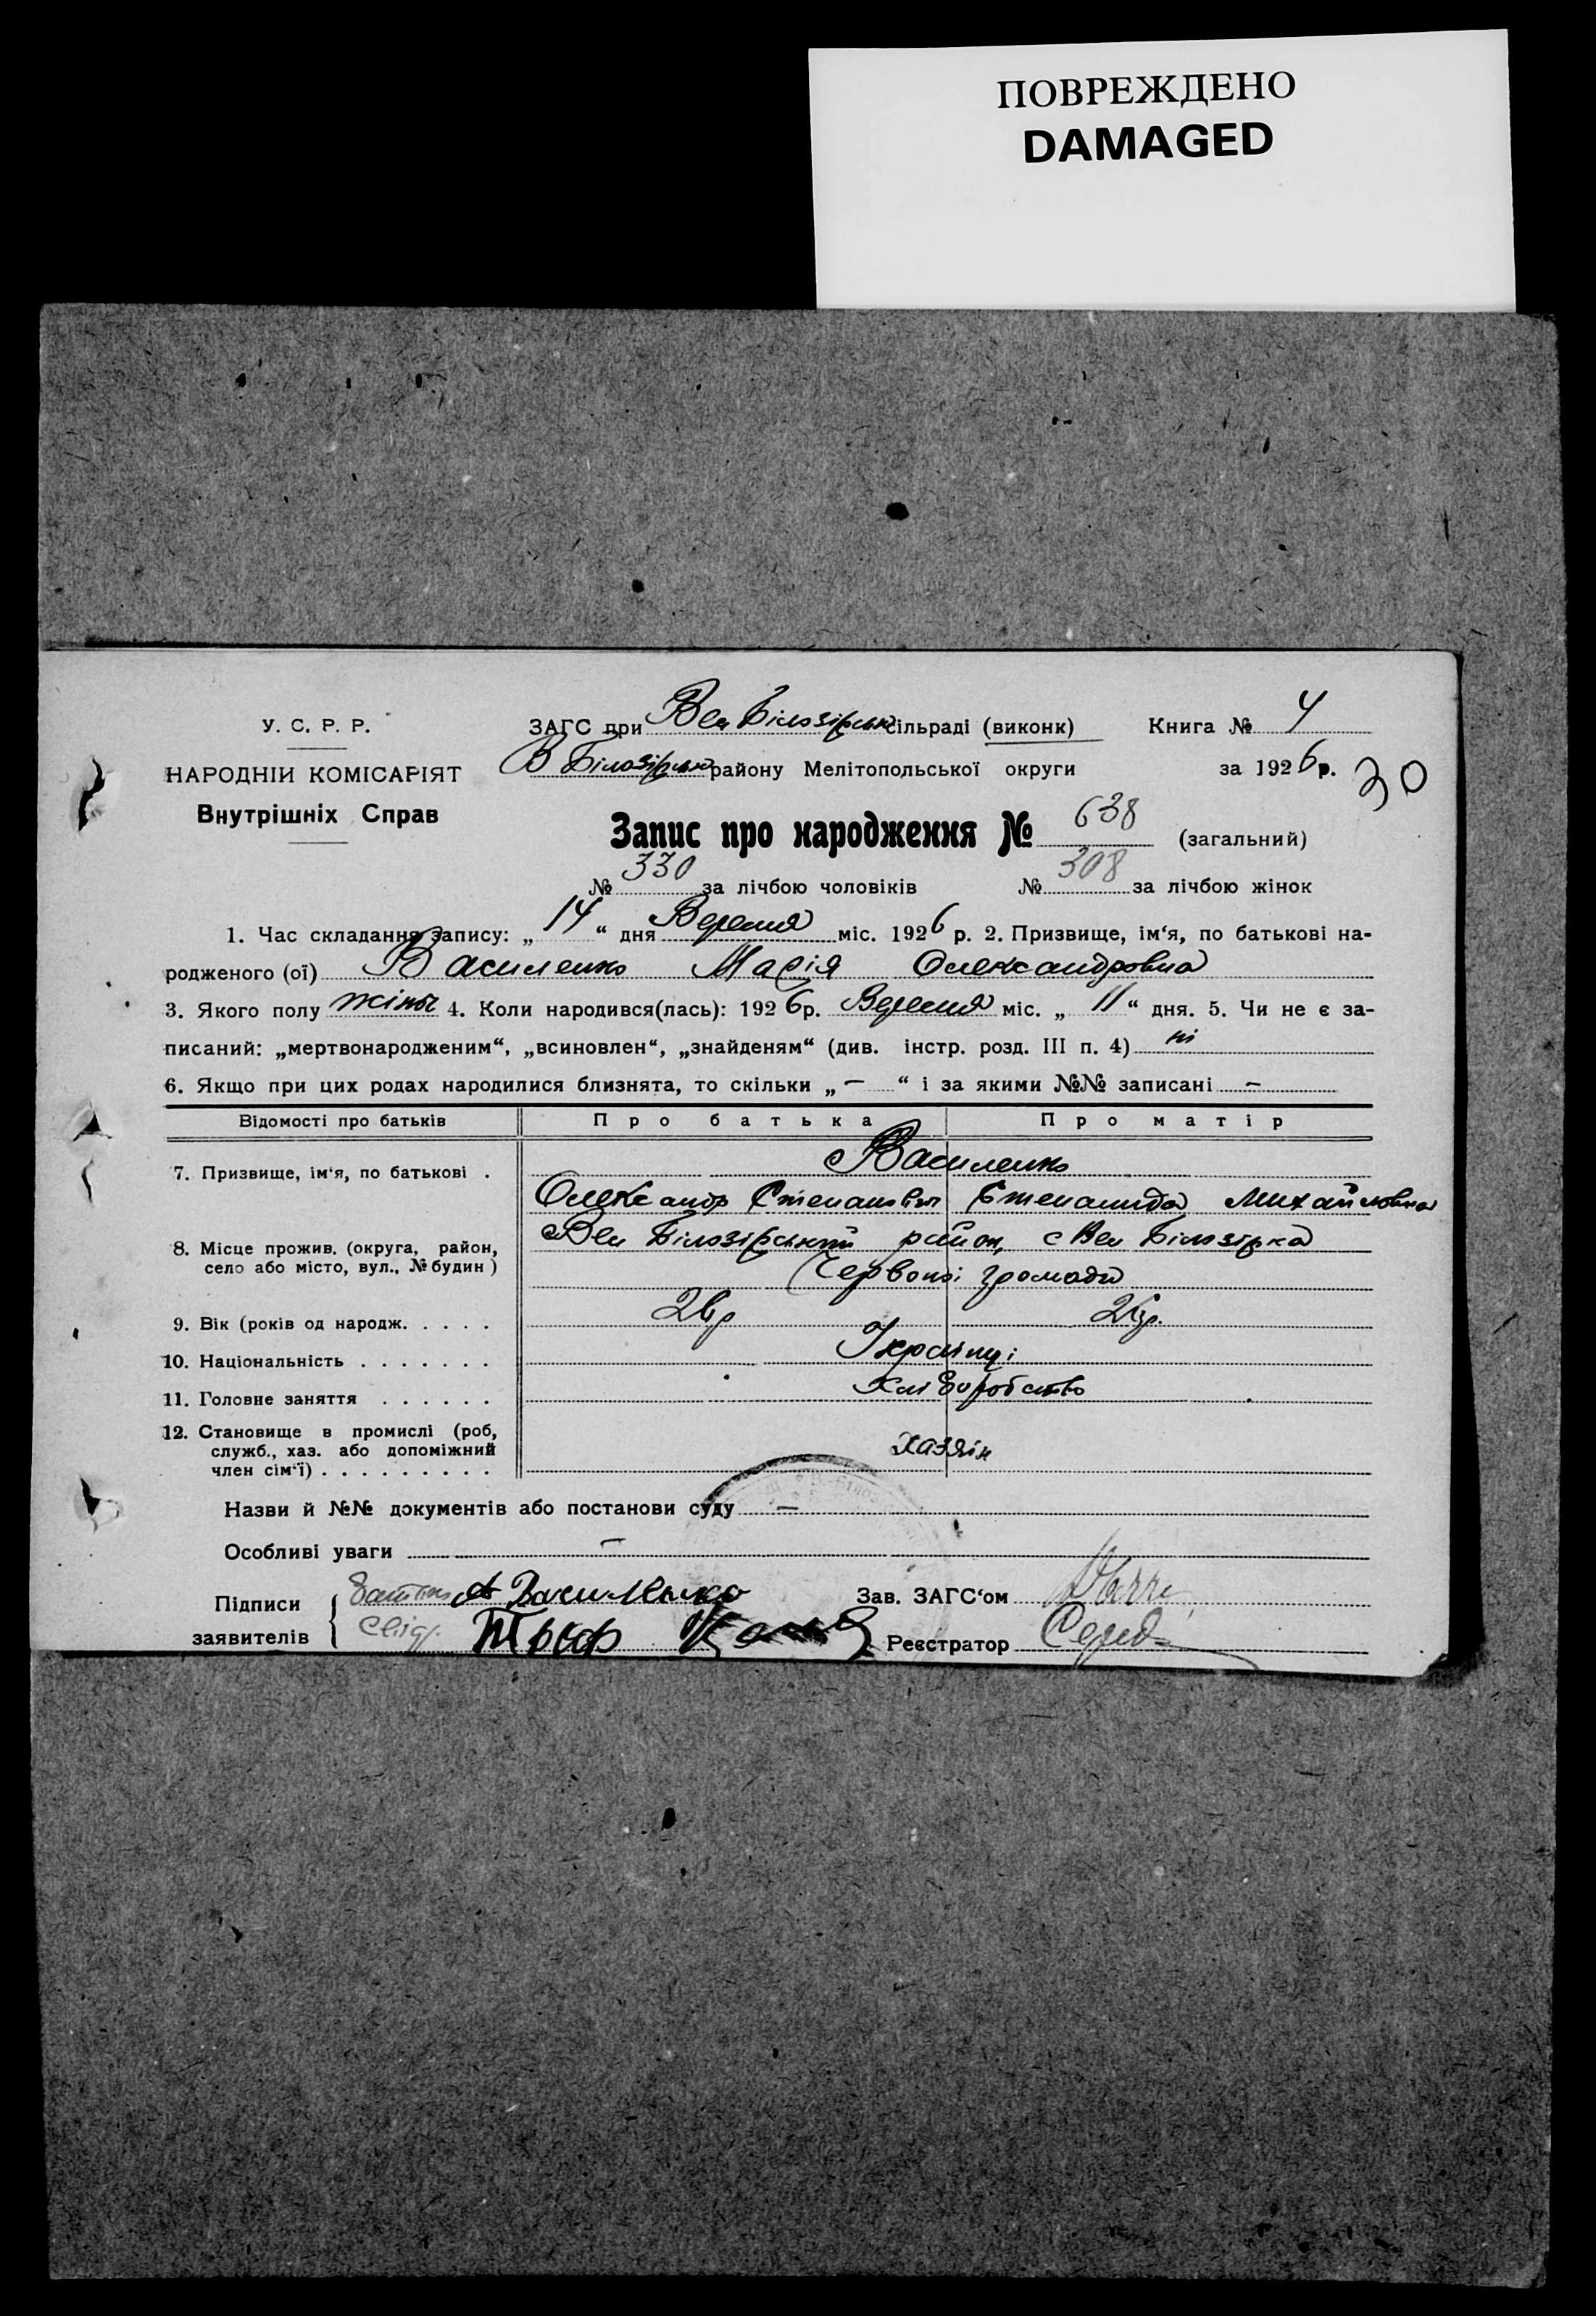 ПОВРЕЖДЕНО
DAMAGED
У. С. Р. Р.
НАРОДНІИ КОМІСАРІЯТ
Внутрішніх Справ
ЗАГС при Вел Білозірськ сільраді (виконк) Книга № 4
В Білозірськ району Мелітопольської округи за 1926 р. 30
Запис про народження № 638 (загальний)
№ 330 за лічбою чоловіків № 308 за лічбою жінок
1. Час складання запису: „ 14 “ дня Вересня міс. 1926 р. 2. Призвище, ім‘я, по батькові на-
родженого (ої) Василенко Марія Олександровна
3. Якого полу жіноч 4. Коли народився(лась): 1926 р. Вересня міс. „ 11 “ дня. 5. Чи не є за-
писаний: „мертвонародженим“, „всиновлен“, „знайденям“ (див. інстр. розд. III п. 4) ні
6. Якщо при цих родах народилися близнята, то скільки „ — “ і за якими №№ записані —
Відомості про батьків Про батька Про матір
7. Призвище, ім‘я, по батькові . Василенко
Олександр Степанович Степанида Михайловна
8. Місце прожив. (округа, район, село або місто, вул., № будин) Вел Білозірський район, с Вел Білозірка
Червоної громади
9. Вік (років од народж. . . . . 26р 26р.
10. Національність . . . . . . . Українці
11. Головне заняття . . . . . . Хліборобство
12. Становище в промислі (роб,
служб., хаз. або допоміжний
член сім‘ї) . . . . . . . . . Хазяїн
Назви й №№ документів або постанови суду —
Особливі уваги —
Підписи А Василенко Зав. ЗАГС‘ом
заявителів Свідр. Реєстратор